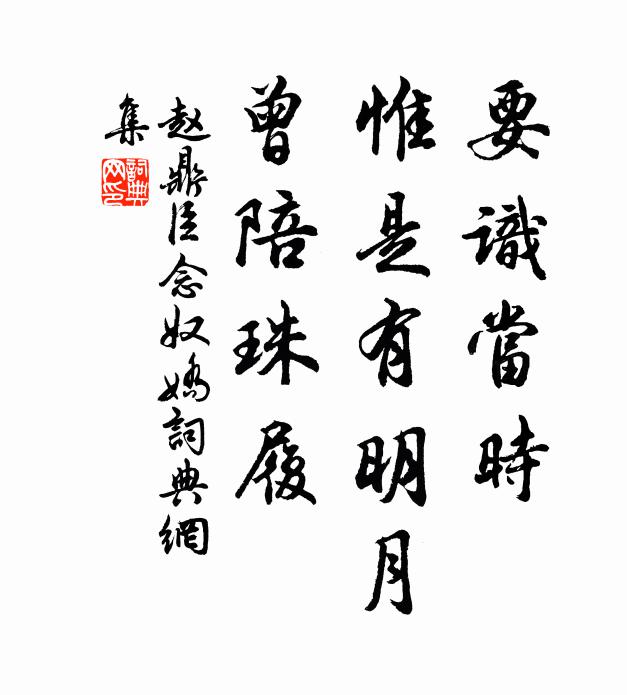 要識當時
惟是有明月
曾陪珠履
赵鼎臣念奴嬌詞典網
集
詞典
网印